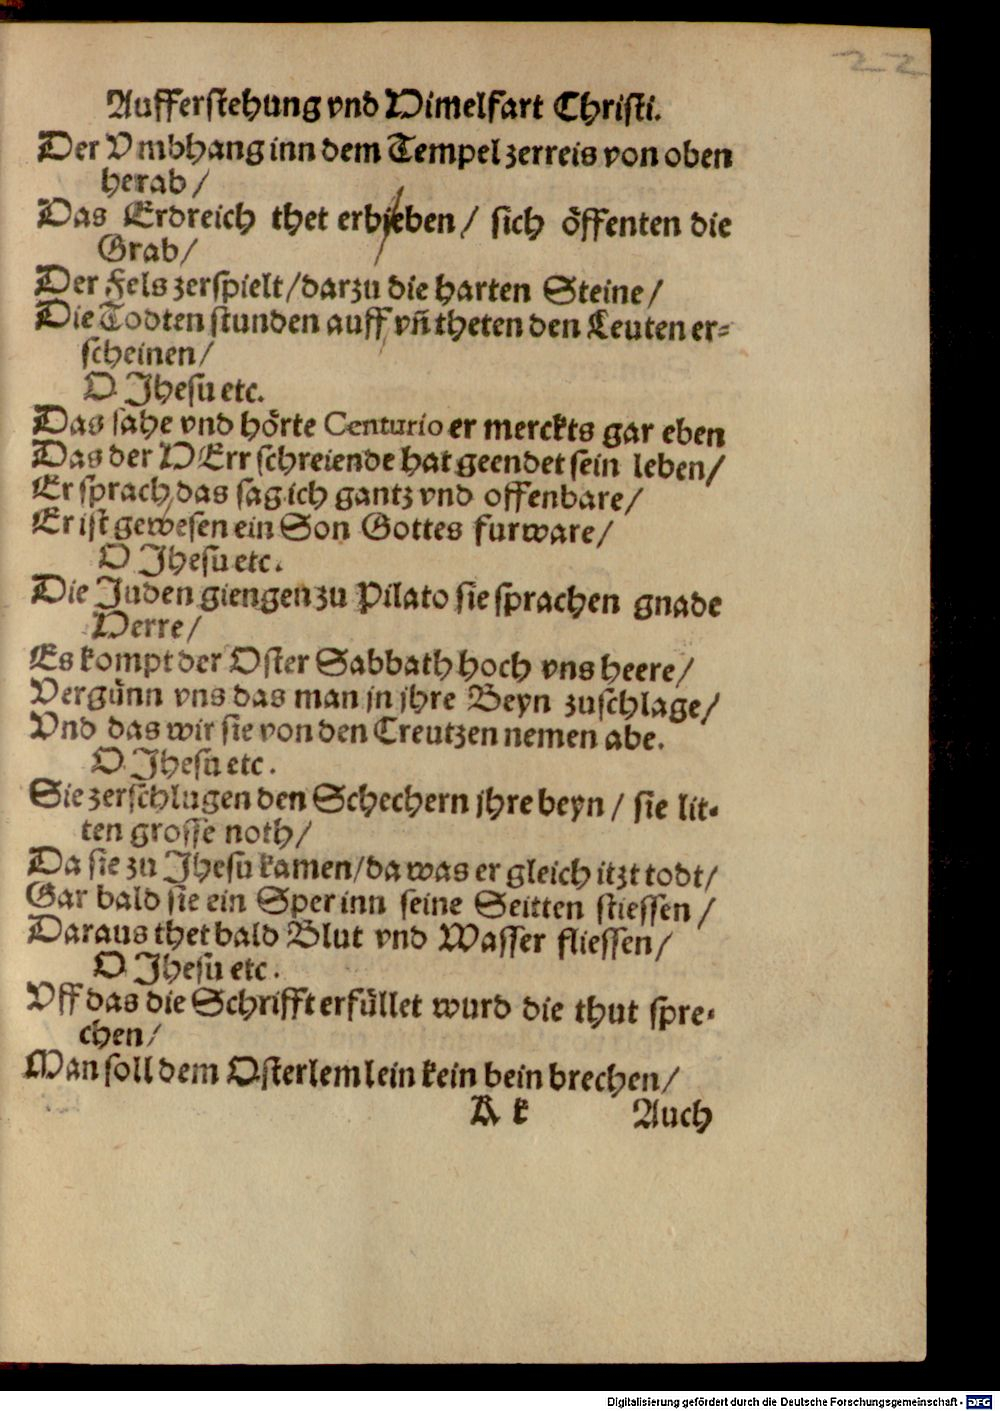 22
Aufferstehung vnd Himelfart Christi.
Der Vmbhang inn dem Tempel zerreis von oben
herab /
Das Erdreich thet erbieben / sich öffenten die
Grab /
Der Fels zerspielt / darzu die harten Steine /
Die Todten stunden auff vñ theten den Leuten er⸗
scheinen /
O Jhesu etc.
Das sahe vnd hörte Centurio er merckts gar eben
Das der HErr schreiende hat geendet sein leben /
Er sprach das sag ich gantz vnd offenbare /
Er ist gewesen ein Son Gottes furware /
O Jhesu etc.
Die Juden giengen zu Pilato sie sprachen gnade
Herre /
Es kompt der Oster Sabbath hoch vns heere /
Vergünn vns das man jn jhre Beyn zuschlage /
Vnd das wir sie von den Creutzen nemen abe.
O Jhesu etc.
Sie zerschlugen den Schechern jhre beyn / sie lit⸗
ten grosse noth /
Da sie zu Jhesu kamen / da was er gleich itzt todt /
Gar bald sie ein Sper inn seine Seitten stiessen /
Daraus thet bald Blut vnd Wasser fliessen /
O Jhesu etc.
Vff das die Schrifft erfüllet wurd die thut spre⸗
chen /
Man soll dem Osterlemlein kein bein brechen /
K k Auch
Digitalisierung gefördert durch die Deutsche Forschungsgemeinschaft - DFG